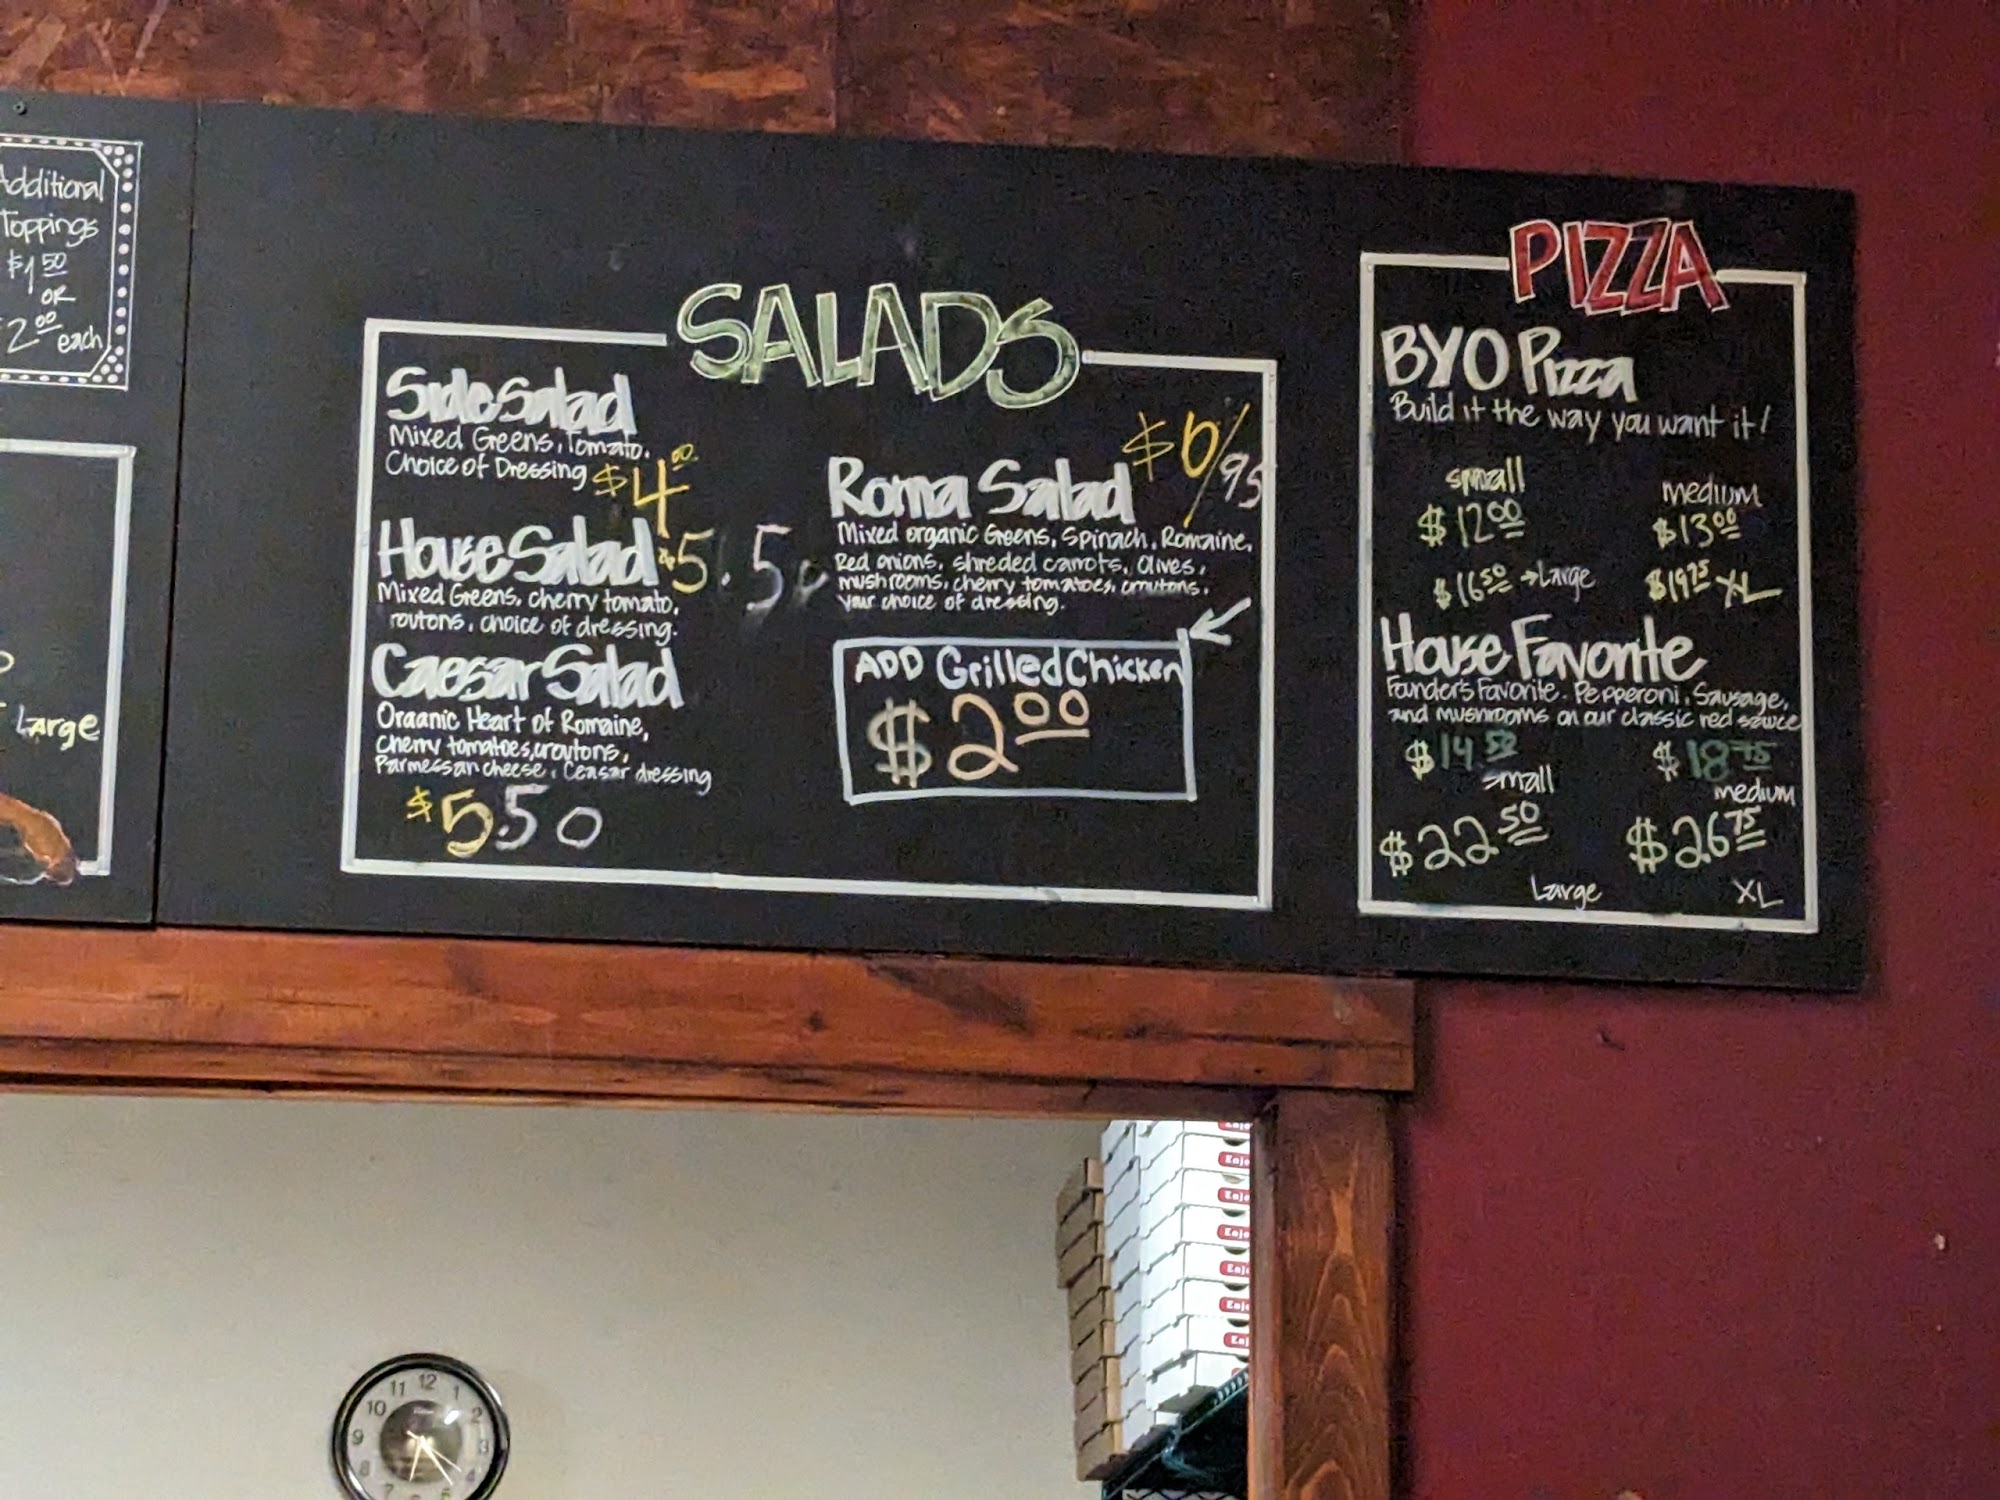 Additional
Toppings
$1.50
OR
2.00
each
Large
SALADS
Side Salad
Mixed Greens, Tomato,
Choice of Dressing $4.00
House Salad $5.50
Mixed Greens, cherry tomato,
routons, choice of dressing.
Caesar Salad
Oraanic Heart of Romaine,
Cherry tomatoes, croutons,
Parmessan cheese, Ceasar dressing
$5.50
$6/95
Roma Salad
Mixed organic Greens, Spinach, Romaine,
Red onions, shreded carrots, Olives,
mushrooms, cherry tomatoes, croutons,
your choice of dressing.
ADD Grilled Chicken
$2.00
PIZZA
BYO Pizza
Build it the way you want it!
small medium
$12.00 $13.00
$16.50 → Large $19.75 XL
House Favorite
Founder's Favorite. Pepperoni, Sausage,
and mushrooms on our classic red sauce
$14.50 $18.75
small medium
$22.50 $26.75
Large XL
Enjo
Enjo
Enjo
Enjo
Enjo
Enjo
11 12 1
10 2
9 3
8 4
7 5